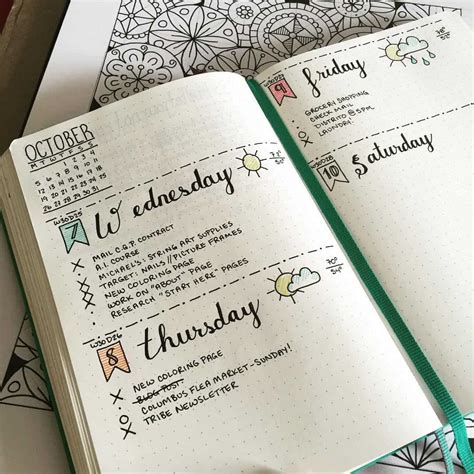 OCTOBER
M T W T F S S
1 2 3 4
5 6 7 8 9 10 11
12 13 14 15 16 17 18
19 20 21 22 23 24 25
26 27 28 29 30 31
WSOD25
7 Wednesday
MAIL C.G.P. CONTRACT
A.I. COURSE
MICHAEL'S: STRING ART SUPPLIES
TARGET: NAILS // PICTURE FRAMES
NEW COLORING PAGE
WORK ON "ABOUT" PAGE
RESEARCH "START HERE" PAGES
WSOD26
8 Thursday
NEW COLORING PAGE
BLOG POST
COLUMBUS FLEA MARKET-SUNDAY!
TRIBE NEWSLETTER
WSOD27
9 Friday
GROCERY SHOPPING
CHECK MAIL
DISTRITO @ 5PM
LAUNDRY!
WSOD28
10 Saturday